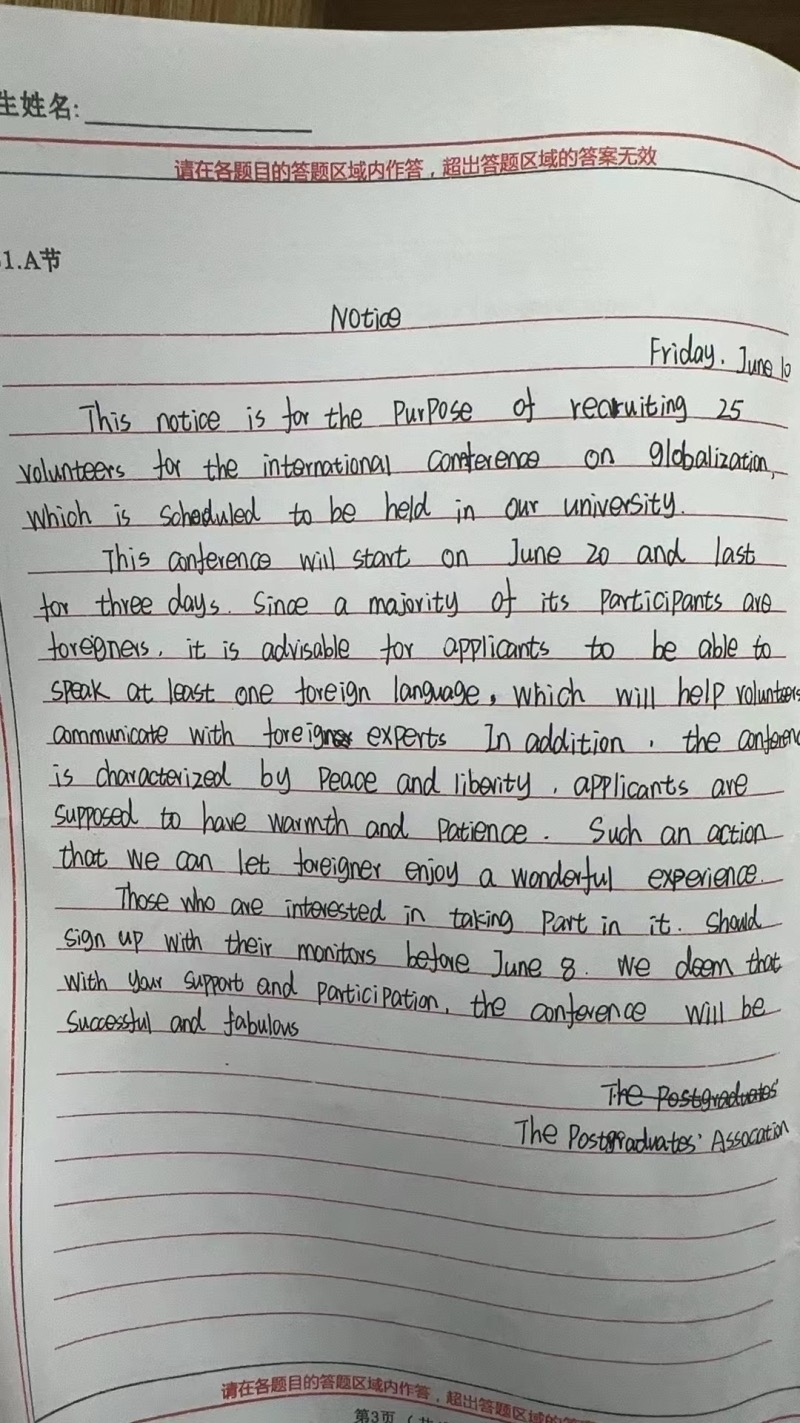 生姓名:
请在各题目的答题区域内作答，超出答题区域的答案无效
1.A节
Notice
Friday. June 10
This notice is for the purpose of recruiting 25
volunteers for the international conference on globalization,
which is scheduled to be held in our university.
This conference will start on June 20 and last
for three days. Since a majority of its participants are
foregners, it is advisable for applicants to be able to
speak at least one foreign language, which will help volunteers
communicate with foreigner experts In addition, the conferenc
is characterized by peace and liberity, applicants are
supposed to have warmth and patience. Such an action
that we can let foreigner enjoy a wonderful experience.
Those who are interested in taking part in it. should
sign up with their monitors before June 8. We deem that
with your support and participation, the conference will be
successful and fabulous
The Postgraduates'
The Postgraduates' Assocation
请在各题目的答题区域内作答，超出答题区域的答案无效
第3页